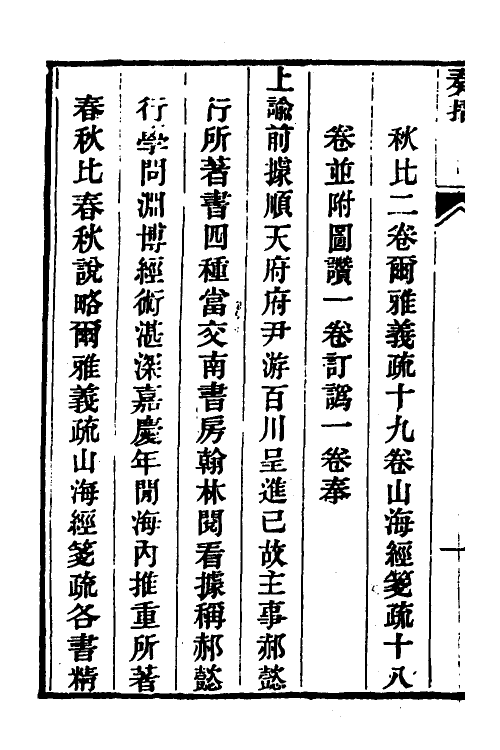 奏摺
秋比二卷爾雅義疏十九卷山海經箋疏十八
卷並附圖讚一卷訂譌一卷奉
上諭前據順天府府尹游百川呈進已故主事郝懿
行所著書四種當交南書房翰林閱看據稱郝懿
行學問淵博經術湛深嘉慶年閒海內推重所著
春秋比春秋說略爾雅義疏山海經箋疏各書精